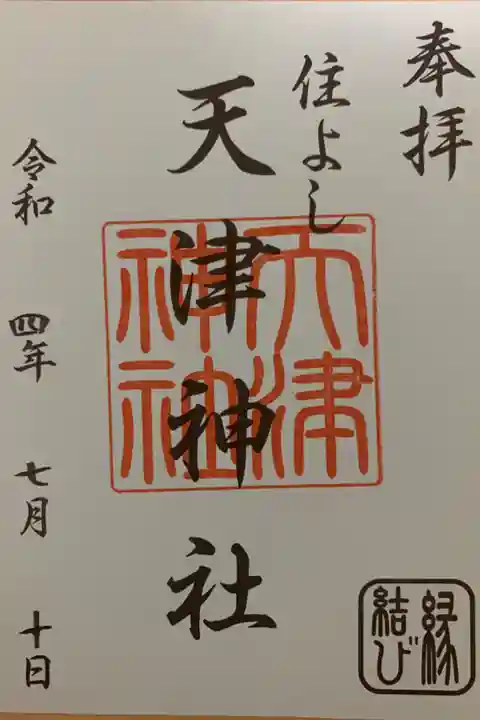 奉拝
住よし
天津神社
天津
神社
令和 四年 七月 十日
縁
結び